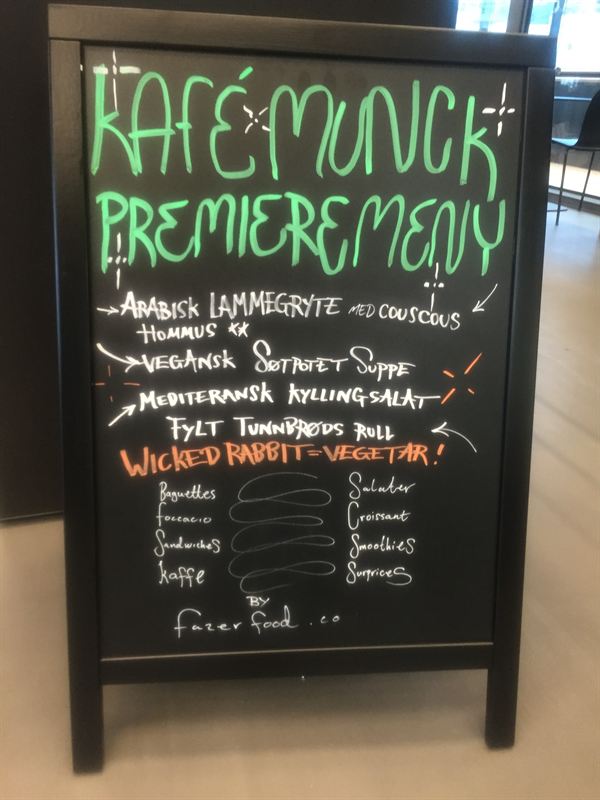 KAFÉ MUNCK
PREMIEREMENY
ARABISK LAMMEGRYTE MED COUSCOUS
HOMMUS **
VEGANSK SØTPOTET SUPPE
MEDITERANSK KYLLINGSALAT
FYLT TUNNBRØDS RULL
WICKED RABBIT = VEGETAR!
Baguettes
foccacio
Sandwiches
kaffe
Salater
Croissant
Smoothies
Surprices
BY
fazer food.co